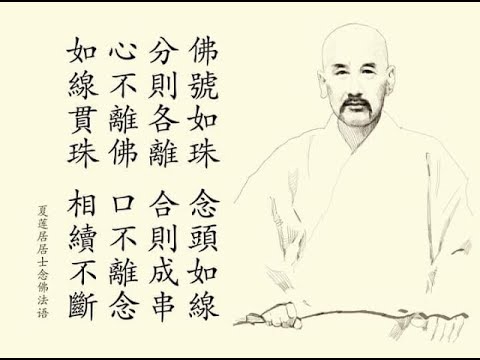 佛號如珠 念頭如線
分則各離 合則成串
心不離佛 口不離念
如線貫珠 相續不斷
夏莲居居士念佛法语